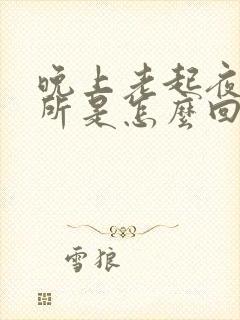 晚上老起夜
所是怎麼回
雪狼